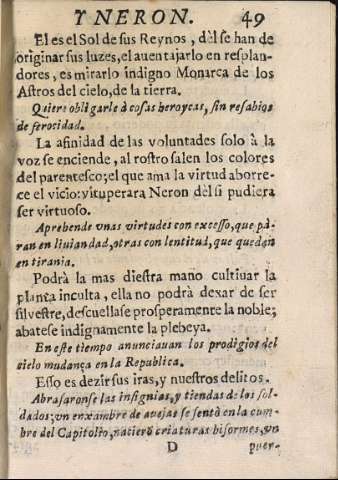 Y NERON. 49
El es el Sol de sus Reynos, dèl se han de
originar sus luzes, el auentajarlo en resplan-
dores, es mirarlo indigno Monarca de los
Astros del cielo, de la tierra.
Quiere obligarle à cosas heroycas, sin resabios
de ferocidad.
La afinidad de las voluntades solo à la
voz se enciende, al rostro salen los colores
del parentesco; el que ama la virtud aborre-
ce el vicio: vituperara Neron dèl si pudiera
ser virtuoso.
Aprehende vnas virtudes con excesso, que pà-
ran en liuiandad, otras con lentitud, que quedan
en tirania.
Podrà la mas diestra mano cultiuar la
planta inculta, ella no podrà dexar de ser
siluestre, descuellase prosperamente la noble;
abatese indignamente la plebeya.
En este tiempo anunciauan los prodigios del
cielo mudança en la Republica.
Esso es dezir sus iras, y nuestros delitos.
Abrasaronse las insignias, y tiendas de los sol-
dados; vn enxambre de auejas se sentò en la cum-
bre del Capitolio, naciero criaturas biformes, vn
D puer-